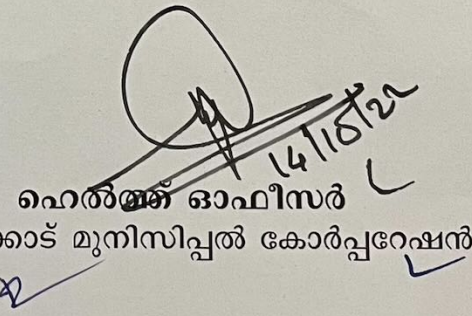 14/10/22
ഹെൽത്ത് ഓഫീസർ
ക്കോട് മുനിസിപ്പൽ കോർപ്പറേഷൻ